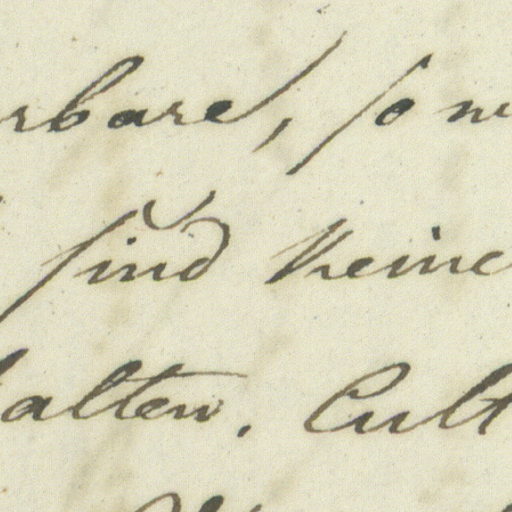 rbares, so
sind keine
halten. Cult